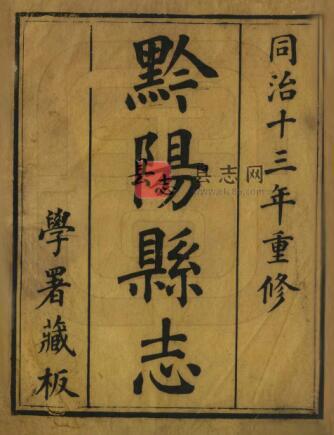 同治十三年重修
黔陽縣志
學署藏板
县志网
www.xianzhi.net